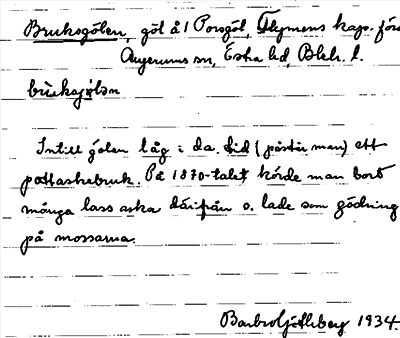 Bruksgölen, göl å 1 Porsgöl, Flymens kap. förs
Augerums sn, Östra hd, Blek. l.
brùksjǫ̀lən
Intill gölen låg i da. tid (påstår man) ett
pottaskebruk. På 1870-talet körde man bort
många lass aska därifrån o. lade som gödning
på mossarna.
Barbro Götlberg 1934.